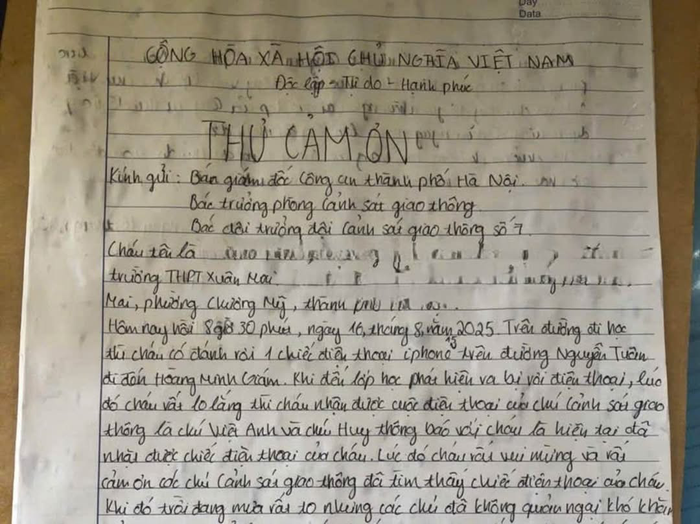 Day
Data
CỘNG HÒA XÃ HỘI CHỦ NGHĨA VIỆT NAM
Độc lập - Tự do - Hạnh phúc
THƯ CẢM ƠN
Kính gửi: Ban giám đốc Công an thành phố Hà Nội.
Bác trưởng phòng Cảnh sát giao thông
Bác đội trưởng đội Cảnh sát giao thông số 7.
Cháu tên là
trường THPT Xuân Mai
Mai, phường Chương Mỹ, thành
Hôm nay vào 8 giờ 30 phút, ngày 16, tháng 8, năm 2025. Trên đường đi học
thì cháu có đánh rơi 1 chiếc điện thoại iphone 13 trên đường Nguyễn Tuân
đi đến Hoàng Minh Giám. Khi đến lớp học phát hiện ra bị rơi điện thoại, lúc
đó cháu rất lo lắng thì cháu nhận được cuộc điện thoại của chú Cảnh sát giao
thông là chú Việt Anh và chú Huy thông báo với cháu là hiện tại đã
nhặt được chiếc điện thoại của cháu. Lúc đó cháu rất vui mừng và rất
cảm ơn các chú Cảnh sát giao thông đã tìm thấy chiếc điện thoại của cháu.
Khi đó trời đang mưa rất to nhưng các chú đã không quản ngại khó khăn